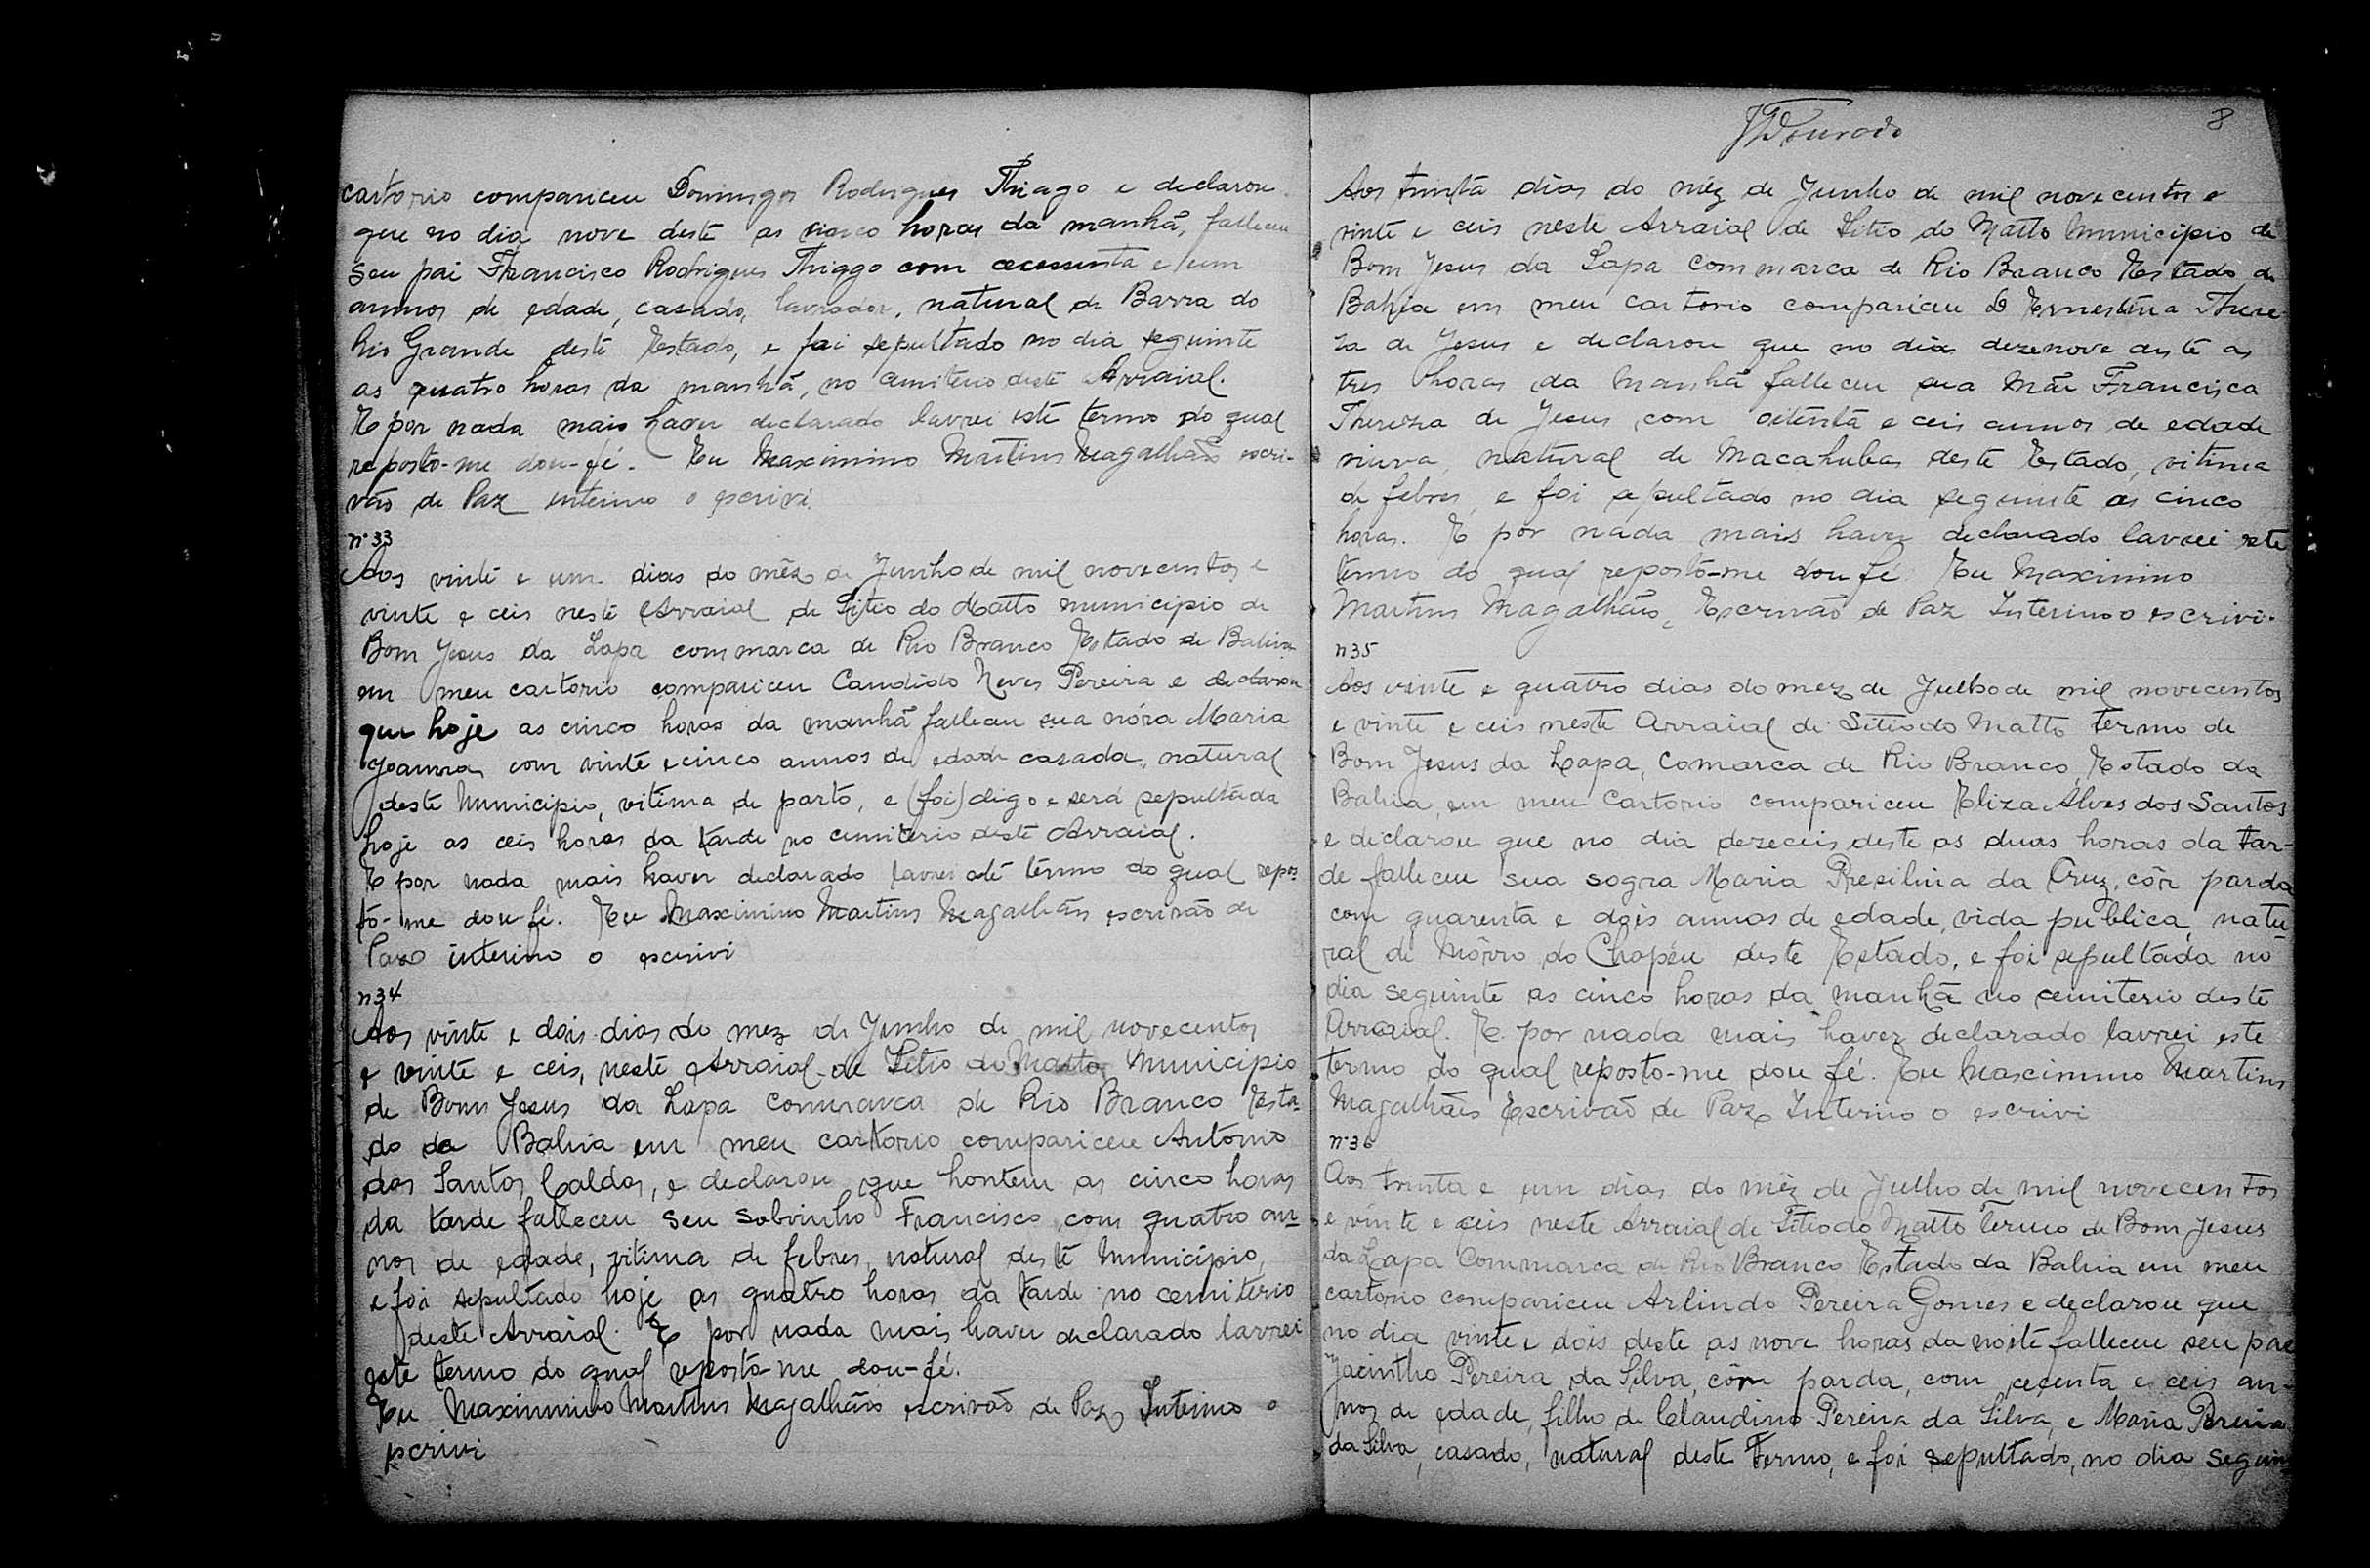 cartorio compariceu Domingos Rodrigues Thiago e declarou
que no dia nove deste as cinco horas da manhã, falleceu
seu pai Francisco Rodrigues Thiago com cecessenta e um
annos de edade, casado, lavrador, natural da Barra do
Rio Grande deste Estado, e foi sepultado no dia seguinte
as quatro horas da manhã, no cemiterio deste Arraial.
E por nada mais haver declarado lavrei este termo do qual
reposto-me dou-fé. Eu Maximino Martins Magalhães escri-
vão de Paz interino o escrivi.
nº 33
Aos vinte e um dias do mêz de Junho de mil novecentos e
vinte e ceis neste Arraial de Sitio do Matto municipio de
Bom Jesus da Lapa commarca de Rio Branco Estado da Bahia
em meu cartorio compariceu Candido Neves Pereira e declarou
que hoje as cinco horas da manhã falleceu sua nóra Maria
Joanna com vinte e cinco annos de edade casada, natural
deste Municipio, vitima de parto, e (foi) digo e será sepultada
hoje as ceis horas da tarde no cimiterio deste Arraial.
E por nada mais haver declarado lavrei este termo do qual repos-
to-me dou fé. Eu Maximino Martins Magalhães escrivão de
Paz interino o escrivi
n 34
Aos vinte e dois dias do mez de Junho de mil novecentos
e vinte e ceis, neste Arraial de Sitio do Matto Municipio
de Bom Jesus da Lapa Commarca de Rio Branco Esta-
do da Bahia em meu cartorio compariceu Antonio
dos Santos Caldas, e declarou que hontem as cinco horas
da tarde falleceu seu sobrinho Francisco, com quatro an-
nos de edade, vitima de febres, natural deste Municipio,
e foi sepultado hoje as quatro horas da tarde no cemiterio
deste Arraial. E por nada mais haver declarado lavrei
este termo do qual reposto-me dou-fé.
Eu Maximino Martins Magalhães escrivão de Paz Interino o
escrivi
Dourado
8
Aos trinta dias do mêz de Junho de mil novecentos e
vinte e ceis neste Arraial de Sitio do Matto Municipio de
Bom Jesus da Lapa Commarca de Rio Branco Estado da
Bahia em meu cartorio compariceu D Ernestina There-
za de Jesus e declarou que no dia dezenove deste as
tres horas da Manhã falleceu sua Mãe Francisca
Thereza de Jesus, com oitenta e ceis annos de edade
viuva, natural de Macahubas deste Estado, vitima
de febres, e foi sepultado no dia seguinte as cinco
horas. E por nada mais haver declarado lavrei este
termo do qual reposto-me dou fé. Eu Maximino
Martins Magalhães, Escrivão de Paz Interino o escrivi.
n 35
Aos vinte e quatro dias do mez de Julho de mil novecentos
e vinte e ceis neste Arraial de Sitio do Matto termo de
Bom Jesus da Lapa, Comarca de Rio Branco, Estado da
Bahia, em meu Cartorio compariceu Eliza Alves dos Santos
e declarou que no dia dezeceis deste as duas horas da tar-
de falleceu sua sogra Maria Presilina da Cruz, côr parda
com quarenta e dois annos de edade, vida publica, natu-
ral de Môrro do Chapéu deste Estado, e foi sepultada no
dia seguinte as cinco horas da manhã no cemiterio deste
Arraial. E por nada mais haver declarado lavrei este
termo do qual reposto-me dou fé. Eu Maximino Martins
Magalhães Escrivão de Paz Interino o escrivi
nº 36
Aos trinta e um dias do mêz de Julho de mil novecentos
e vinte e ceis neste Arraial de Sitio do Matto Termo de Bom Jesus
da Lapa Commarca de Rio Branco Estado da Bahia em meu
cartorio compariceu Arlindo Pereira Gomes e declarou que
no dia vinte e dois deste as nove horas da noite falleceu seu pae
Jacintho Pereira da Silva, côr parda, com cecenta e ceis an-
nos de edade, filho de Claudino Pereira da Silva, e Maria Pereira
da Silva, casado, natural deste Termo, e foi sepultado, no dia seguin-